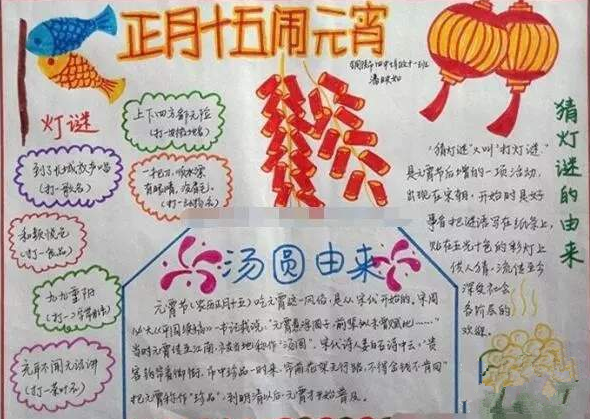 正月十五闹元宵
灯谜
上下四方都无险
(打一安徽地名)
到了长城放声唱
(打一歌名)
(打一动物名)
和颜悦色
(打一食品)
九九重阳
(打一二字用语)
充耳不闻无法讲
(打一茶叶名)
猜灯谜的由来
"猜灯谜"又叫"打灯谜"
是元宵节后增的一项活动,
出现在宋朝,开始时是好
事者把谜语写在纸条上,
贴在五光十色的彩灯上
供人猜,流传至今
深受社会
各阶层的
欢迎。
汤圆由来
元宵节(农历正月十五)吃元宵这一风俗,是从宋代开始的。宋周
必大《平园续稿》一书记载说,"元宵煮浮圆子,前辈似未曾赋此……"
当时元宵传至江南,被当地称作"汤圆"。宋代诗人姜白石诗中云:"贵
客钩帘看御街,市中珍品一时来,帘前花架无行路,不得金钱不肯回"
把元宵称作"珍品",到明清以后,元宵才开始普及。